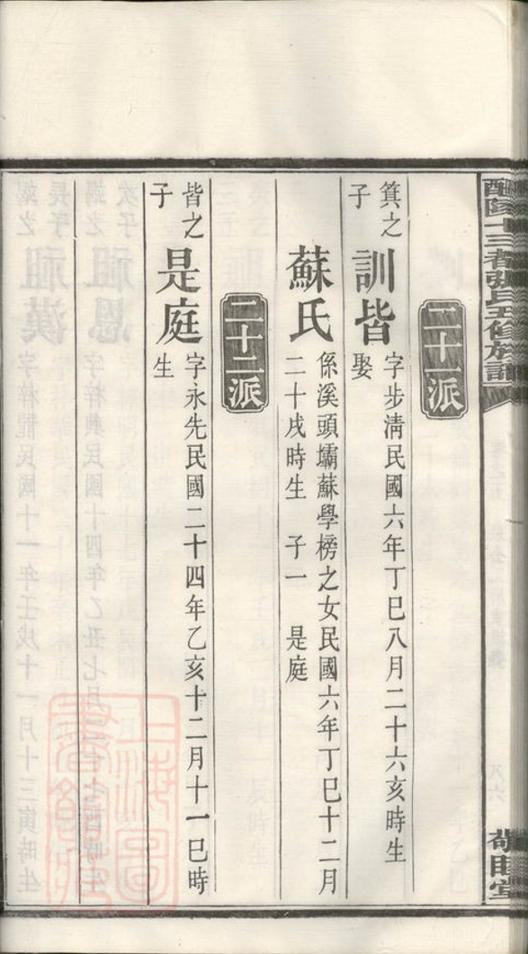 二十一派
箕之子
訓皆
字步清民國六年丁巳八月二十六亥時生
娶
蘇氏
係溪頭壩蘇學榜之女民國六年丁巳十二月
二十戌時生 子一 是庭
二十二派
皆之子
是庭
字永先民國二十四年乙亥十二月十一巳時
生
十三
張氏五修族譜
敬睦堂
上海圖書館藏